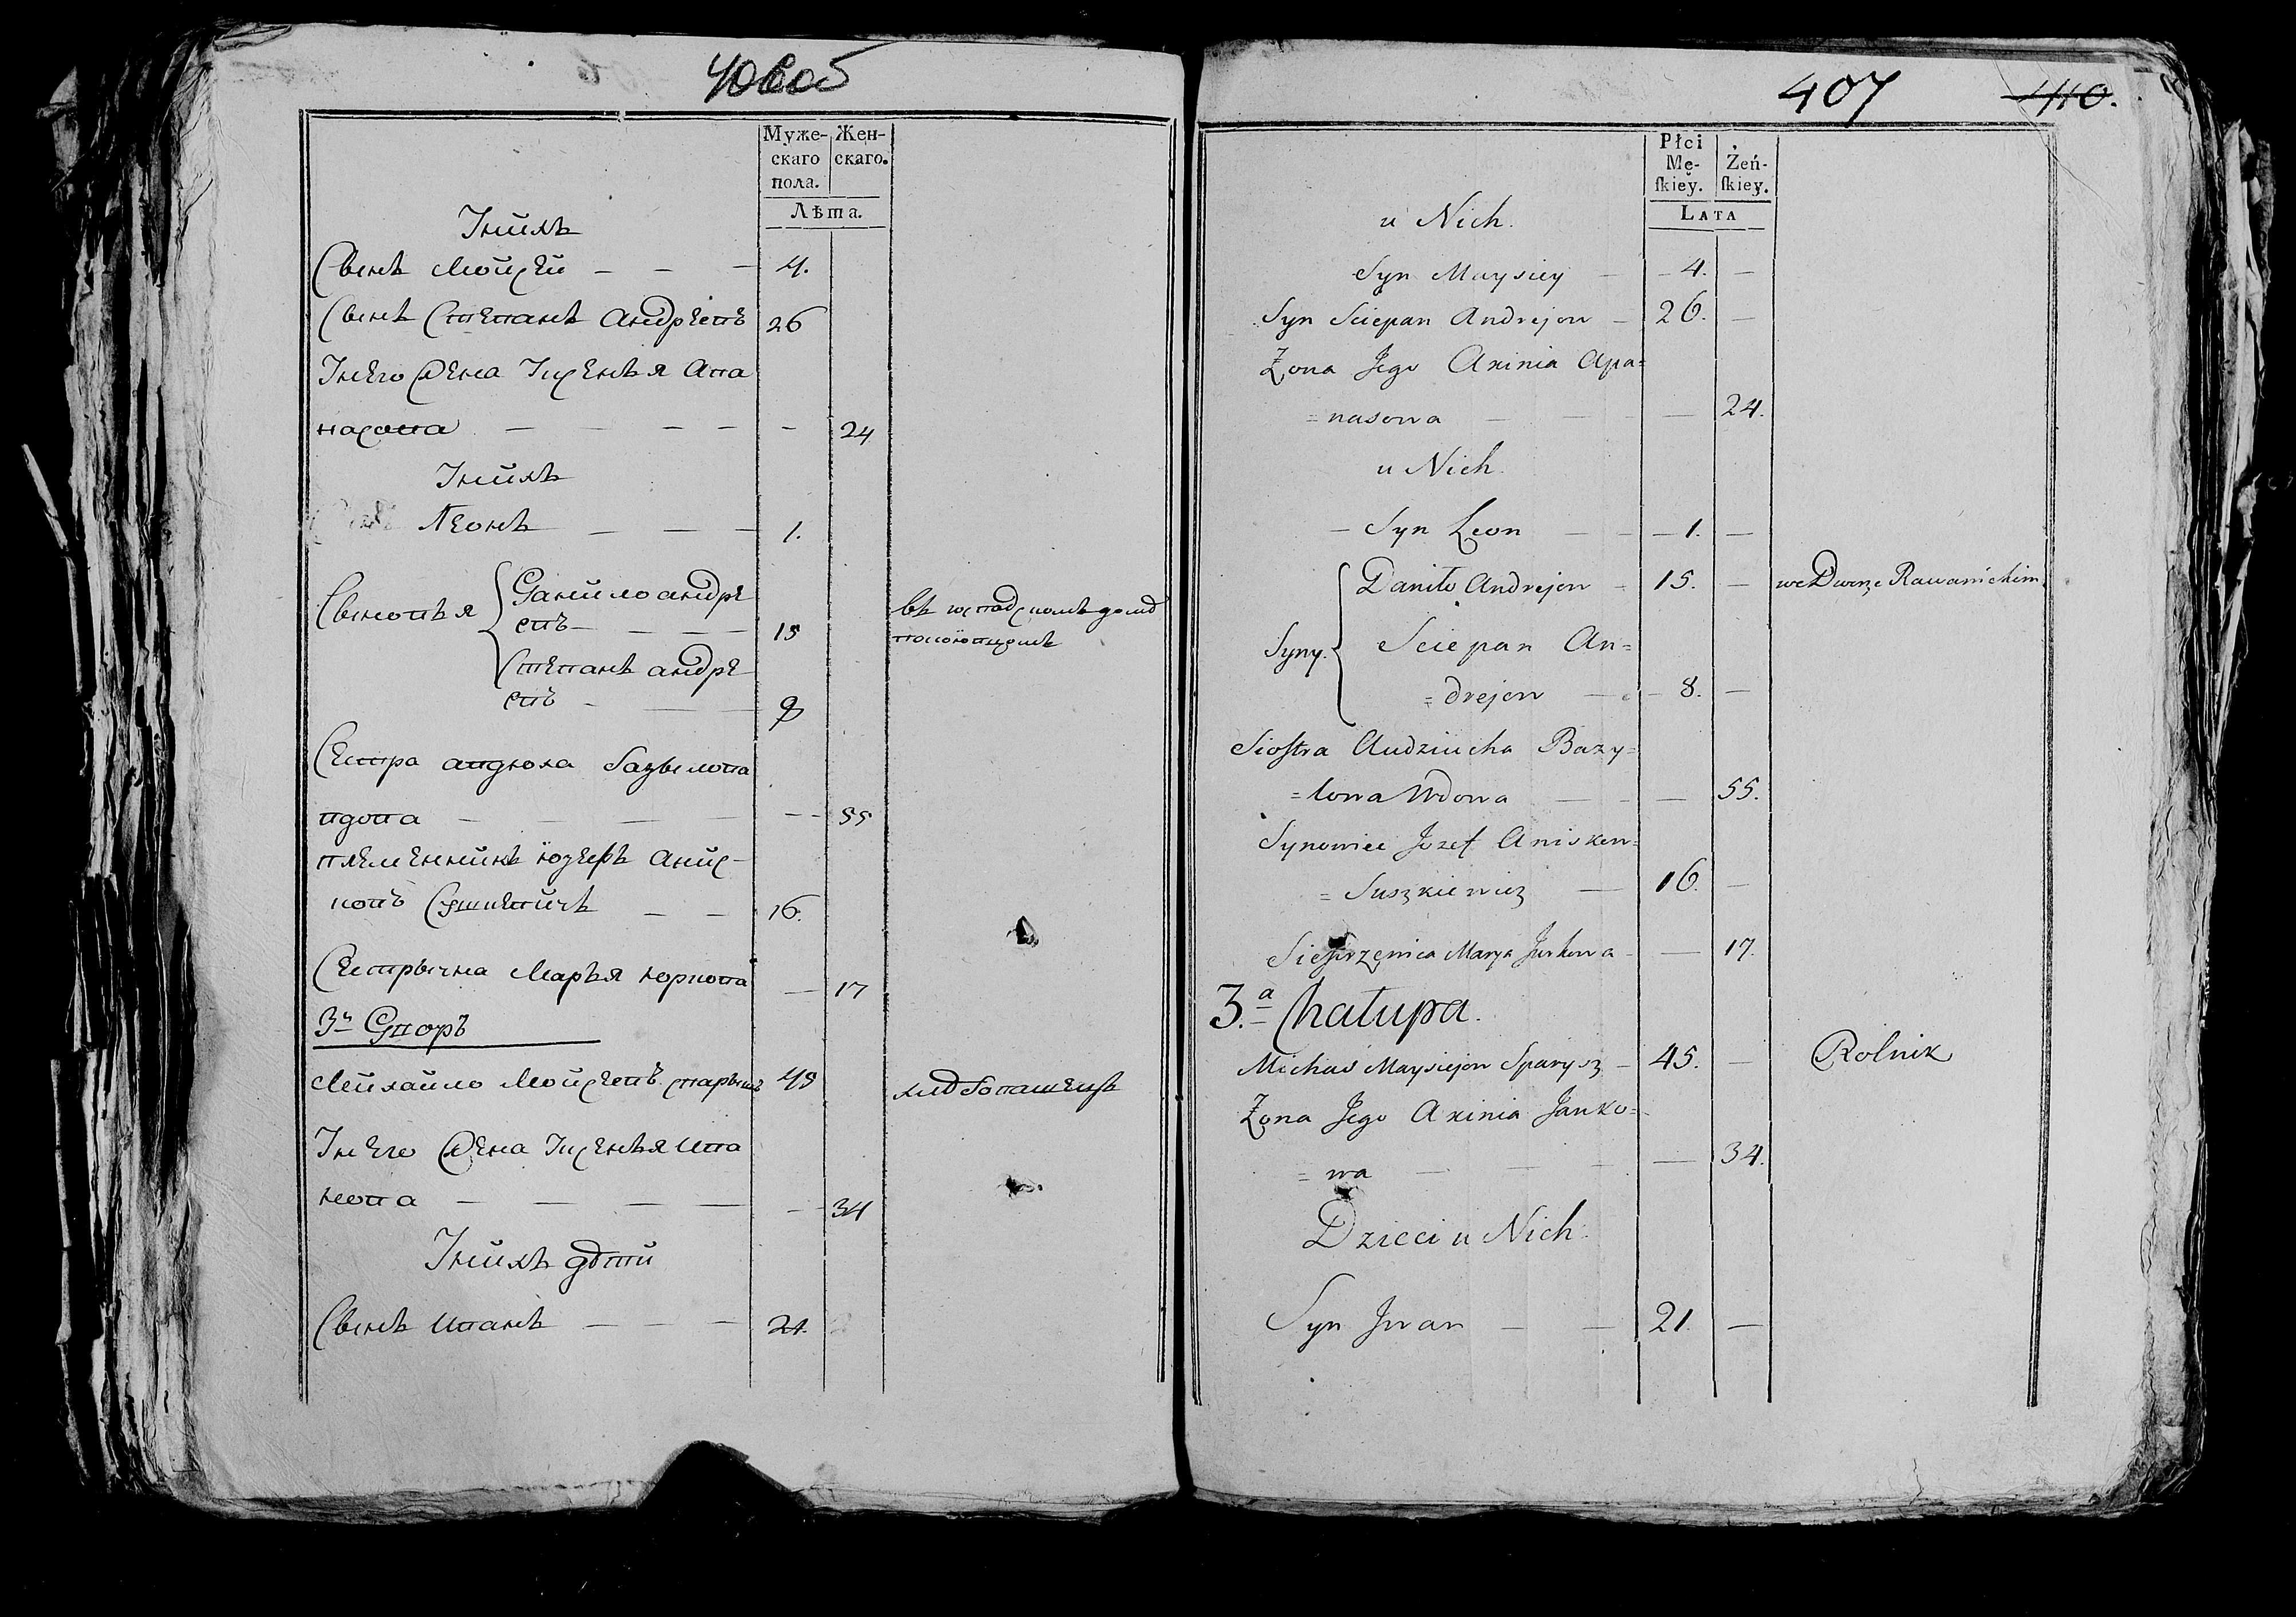 406об
Муже-
скаго
пола.
Жен-
скаго.
Лѣта.
Унихъ
Сынъ Мойсей — — — 4.
Сынъ Степанъ Андреевъ 26
Унего Жена Ксеньья Апа
насова — — — — — 24
Унихъ
Леонъ — — — 1.
Сыновья Данило андре
евъ — — — — 15
въ господскомъ домѣ
Степанъ андре
евъ — — 8
Сестра авдюха базылова
вдова — — — — 55
племенникъ юзефъ анис-
ковъ Сушкевичъ — — 16.
Сестрычна Марья юркова — 17
3й Дворъ
Михайло Мойсеевъ спарышъ 45 хлѣбопашецъ
Унего Жена Ксенья ива
нова — — — — — 34
Унихъ дѣти
Сынъ иванъ — — — 21.
407 110.
Płci
Mę-
ſkiey.
Żeń-
ſkiey.
LATA
u Nich.
Syn Maysiey — — 4. —
Syn Sciepan Andrejow — 26. —
Żona Jego Axinia Apa=
= nasowa — — — — 24.
u Nich.
— Syn Leon — — — 1. —
Daniło Andrejow — 15. — we Dworze Rawanichim
Syny. Sciepan An=
= drejow — — 8. —
Siostra Audziucha Bazy=
= lowa Wdowa — — — 55.
Synowiec Jozef Aniskow=
= Suszkiewicz — 16. —
Siestrzenica Marya Jurkowa — — 17.
3.a Chatupa.
Michaś Maysiejow Sparysz — 45. — Rolnik
Żona Jego Axinia Janko=
= wa — — — — 34.
Dzieci u Nich.
Syn Jwan — — 21. —